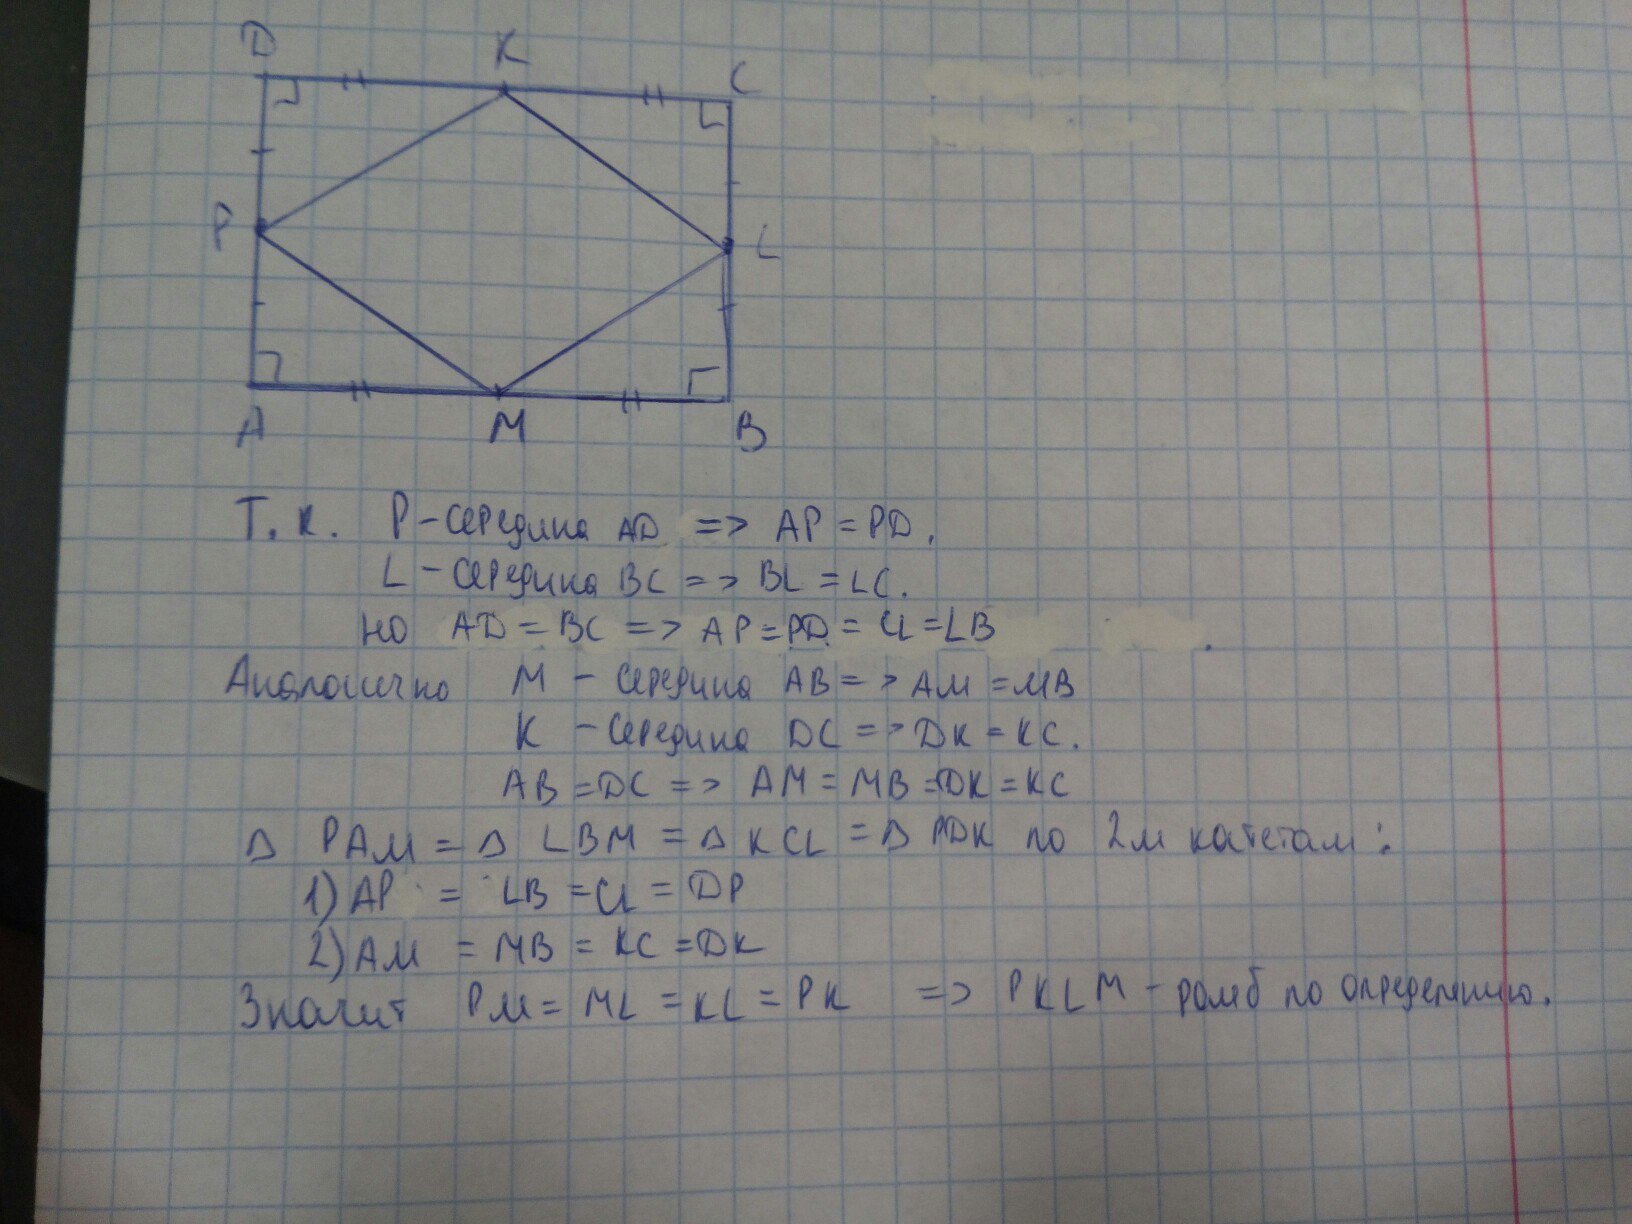 D K C
P L
A M B
Т.к. P - середина AD => AP = PD.
L - середина BC => BL = LC.
но AD = BC => AP = PD = CL = LB .
Аналогично M - середина AB => AM = MB
K - середина DC => DK = KC.
AB = DC => AM = MB = DK = KC
Δ PAM = Δ LBM = Δ KCL = Δ PDK по 2м катетам:
1) AP = LB = CL = DP
2) AM = MB = KC = DK
Значит PM = ML = KL = PK => PKLM - ромб по определению.